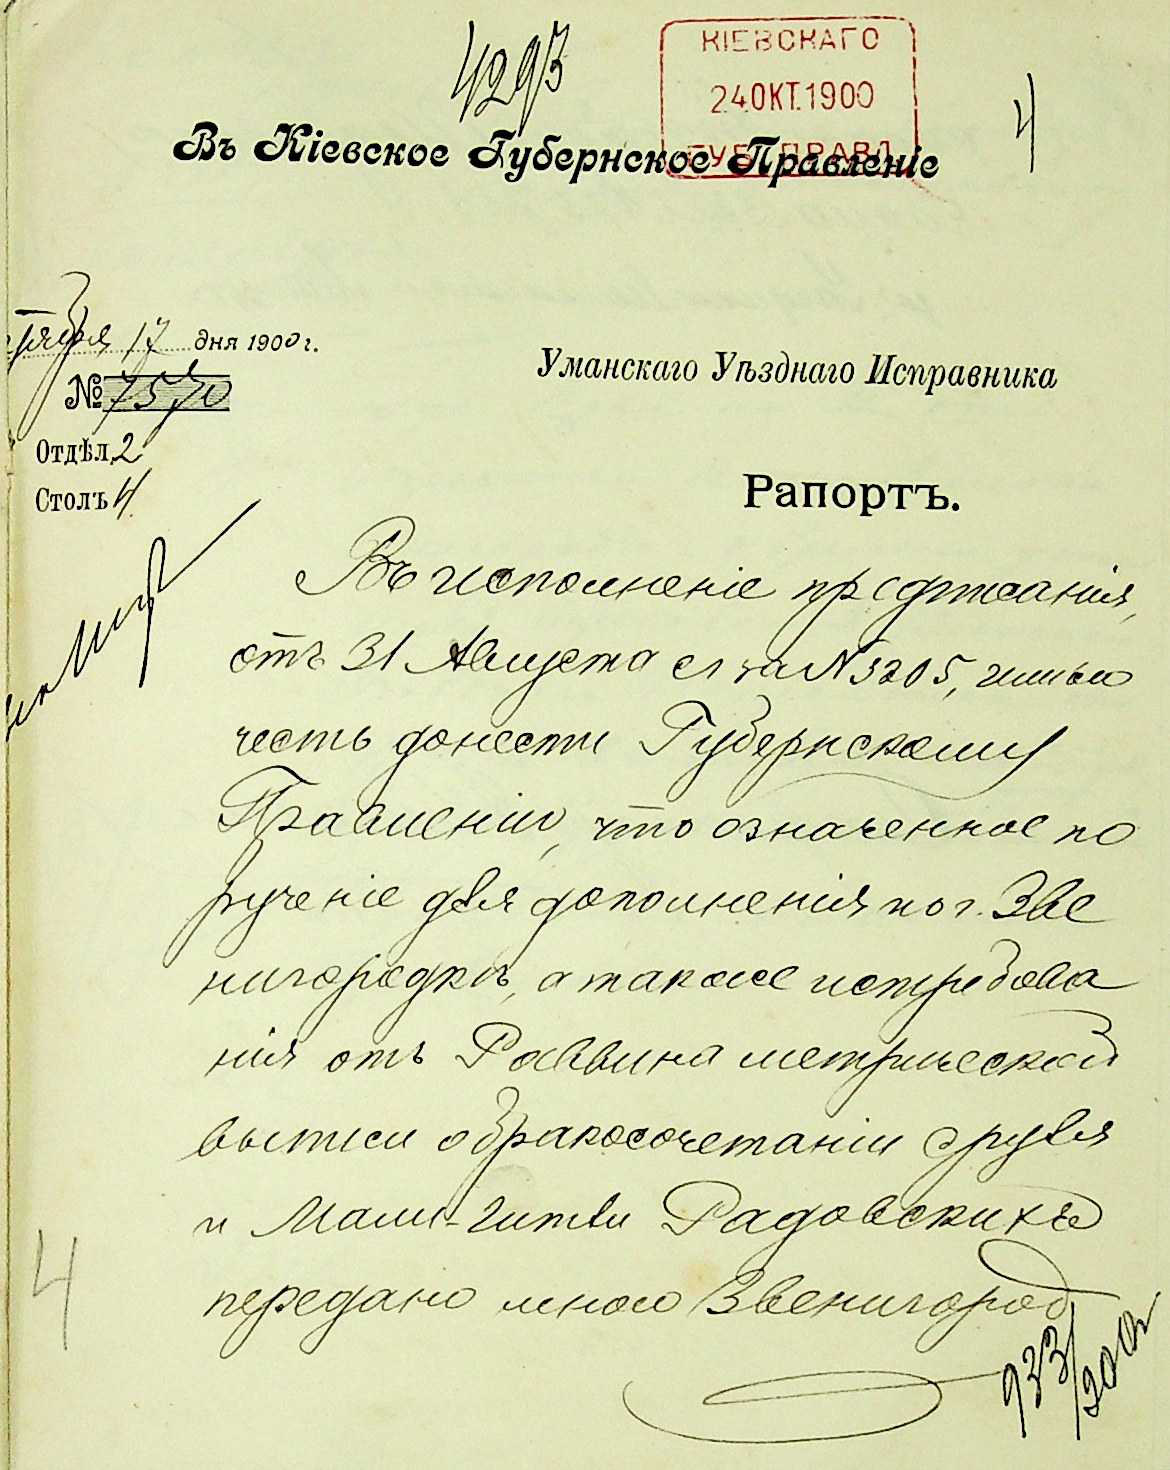 4293
КІЕВСКАГО
24 ОКТ. 1900
ГУБ. ПРАВЛ.
4
Въ Кіевское Губернское Правленіе
17 дня 1900 г.
№ 7570
Отдѣл. 2
Столъ 4
Уманскаго Уѣзднаго Исправника
Рапортъ.
Въ исполненіе предписанія,
отъ 31 Августа с г за N 3205, имѣю
честь донести Губернскому
Правленію, что означенное по
рученіе для дополненія по г. Зве
нигородкѣ, а также истребова
нія отъ Раввина метрической
выписи о бракосочетаніи Сруля
и Мали-Гитли Радовскихъ
передано мною Звенигород
4
933/